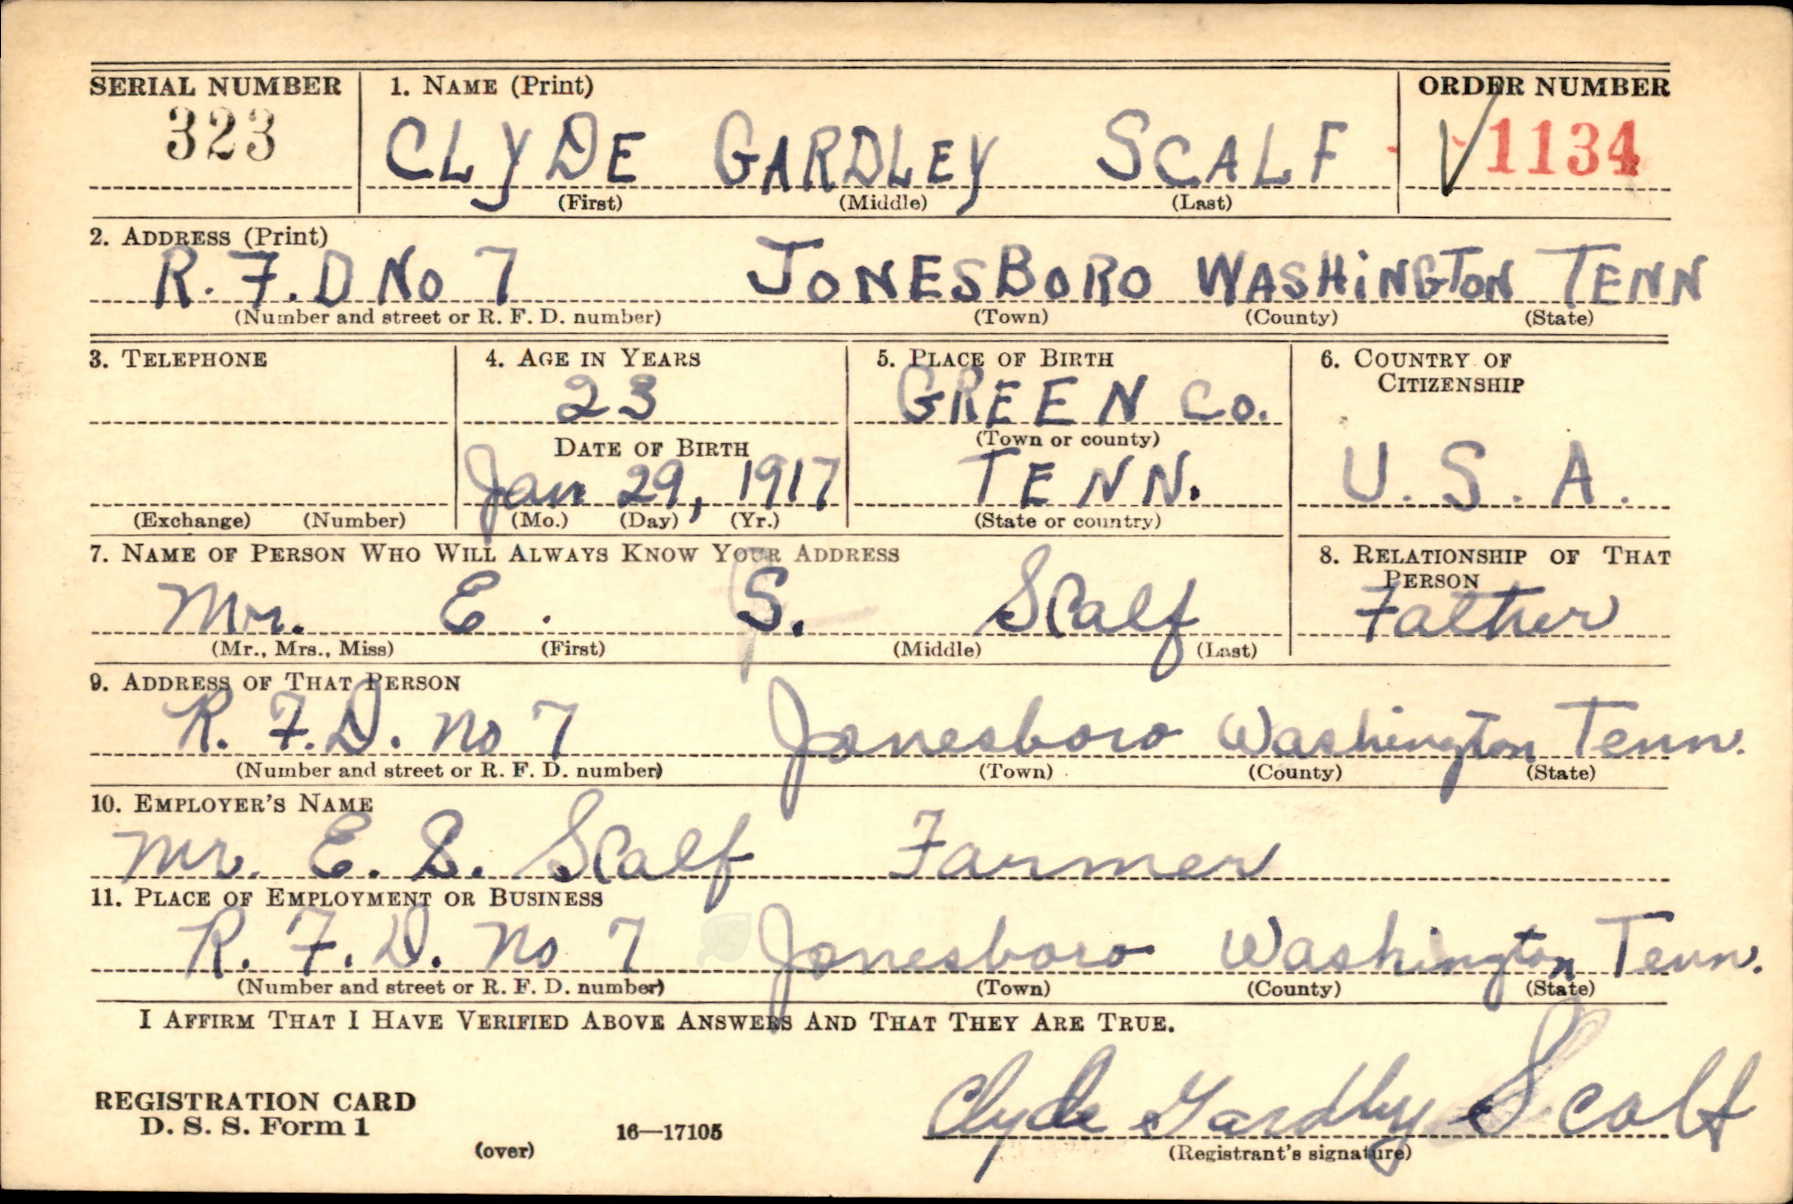 SERIAL NUMBER 1. NAME (Print) ORDER NUMBER
323 CLYDE GARDLEY SCALF 1134
(First) (Middle) (Last)
2. ADDRESS (Print)
R. F. D No 7 JONESBORO WASHINGTON TENN
(Number and street or R. F. D. number) (Town) (County) (State)
3. TELEPHONE 4. AGE IN YEARS 5. PLACE OF BIRTH 6. COUNTRY OF
CITIZENSHIP
23 GREEN Co.
DATE OF BIRTH (Town or county)
Jan 29, 1917 TENN. U. S. A.
(Exchange) (Number) (Mo.) (Day) (Yr.) (State or country)
7. NAME OF PERSON WHO WILL ALWAYS KNOW YOUR ADDRESS 8. RELATIONSHIP OF THAT
PERSON
Mr. E. S. Scalf Father
(Mr., Mrs., Miss) (First) (Middle) (Last)
9. ADDRESS OF THAT PERSON
R. F. D. No 7 Jonesboro Washington Tenn.
(Number and street or R. F. D. number) (Town) (County) (State)
10. EMPLOYER'S NAME
Mr. E. S. Scalf Farmer
11. PLACE OF EMPLOYMENT OR BUSINESS
R. F. D. No 7 Jonesboro Washington Tenn.
(Number and street or R. F. D. number) (Town) (County) (State)
I AFFIRM THAT I HAVE VERIFIED ABOVE ANSWERS AND THAT THEY ARE TRUE.
REGISTRATION CARD
D. S. S. Form 1
(over) 16—17105
Clyde Gardley Scalf
(Registrant's signature)